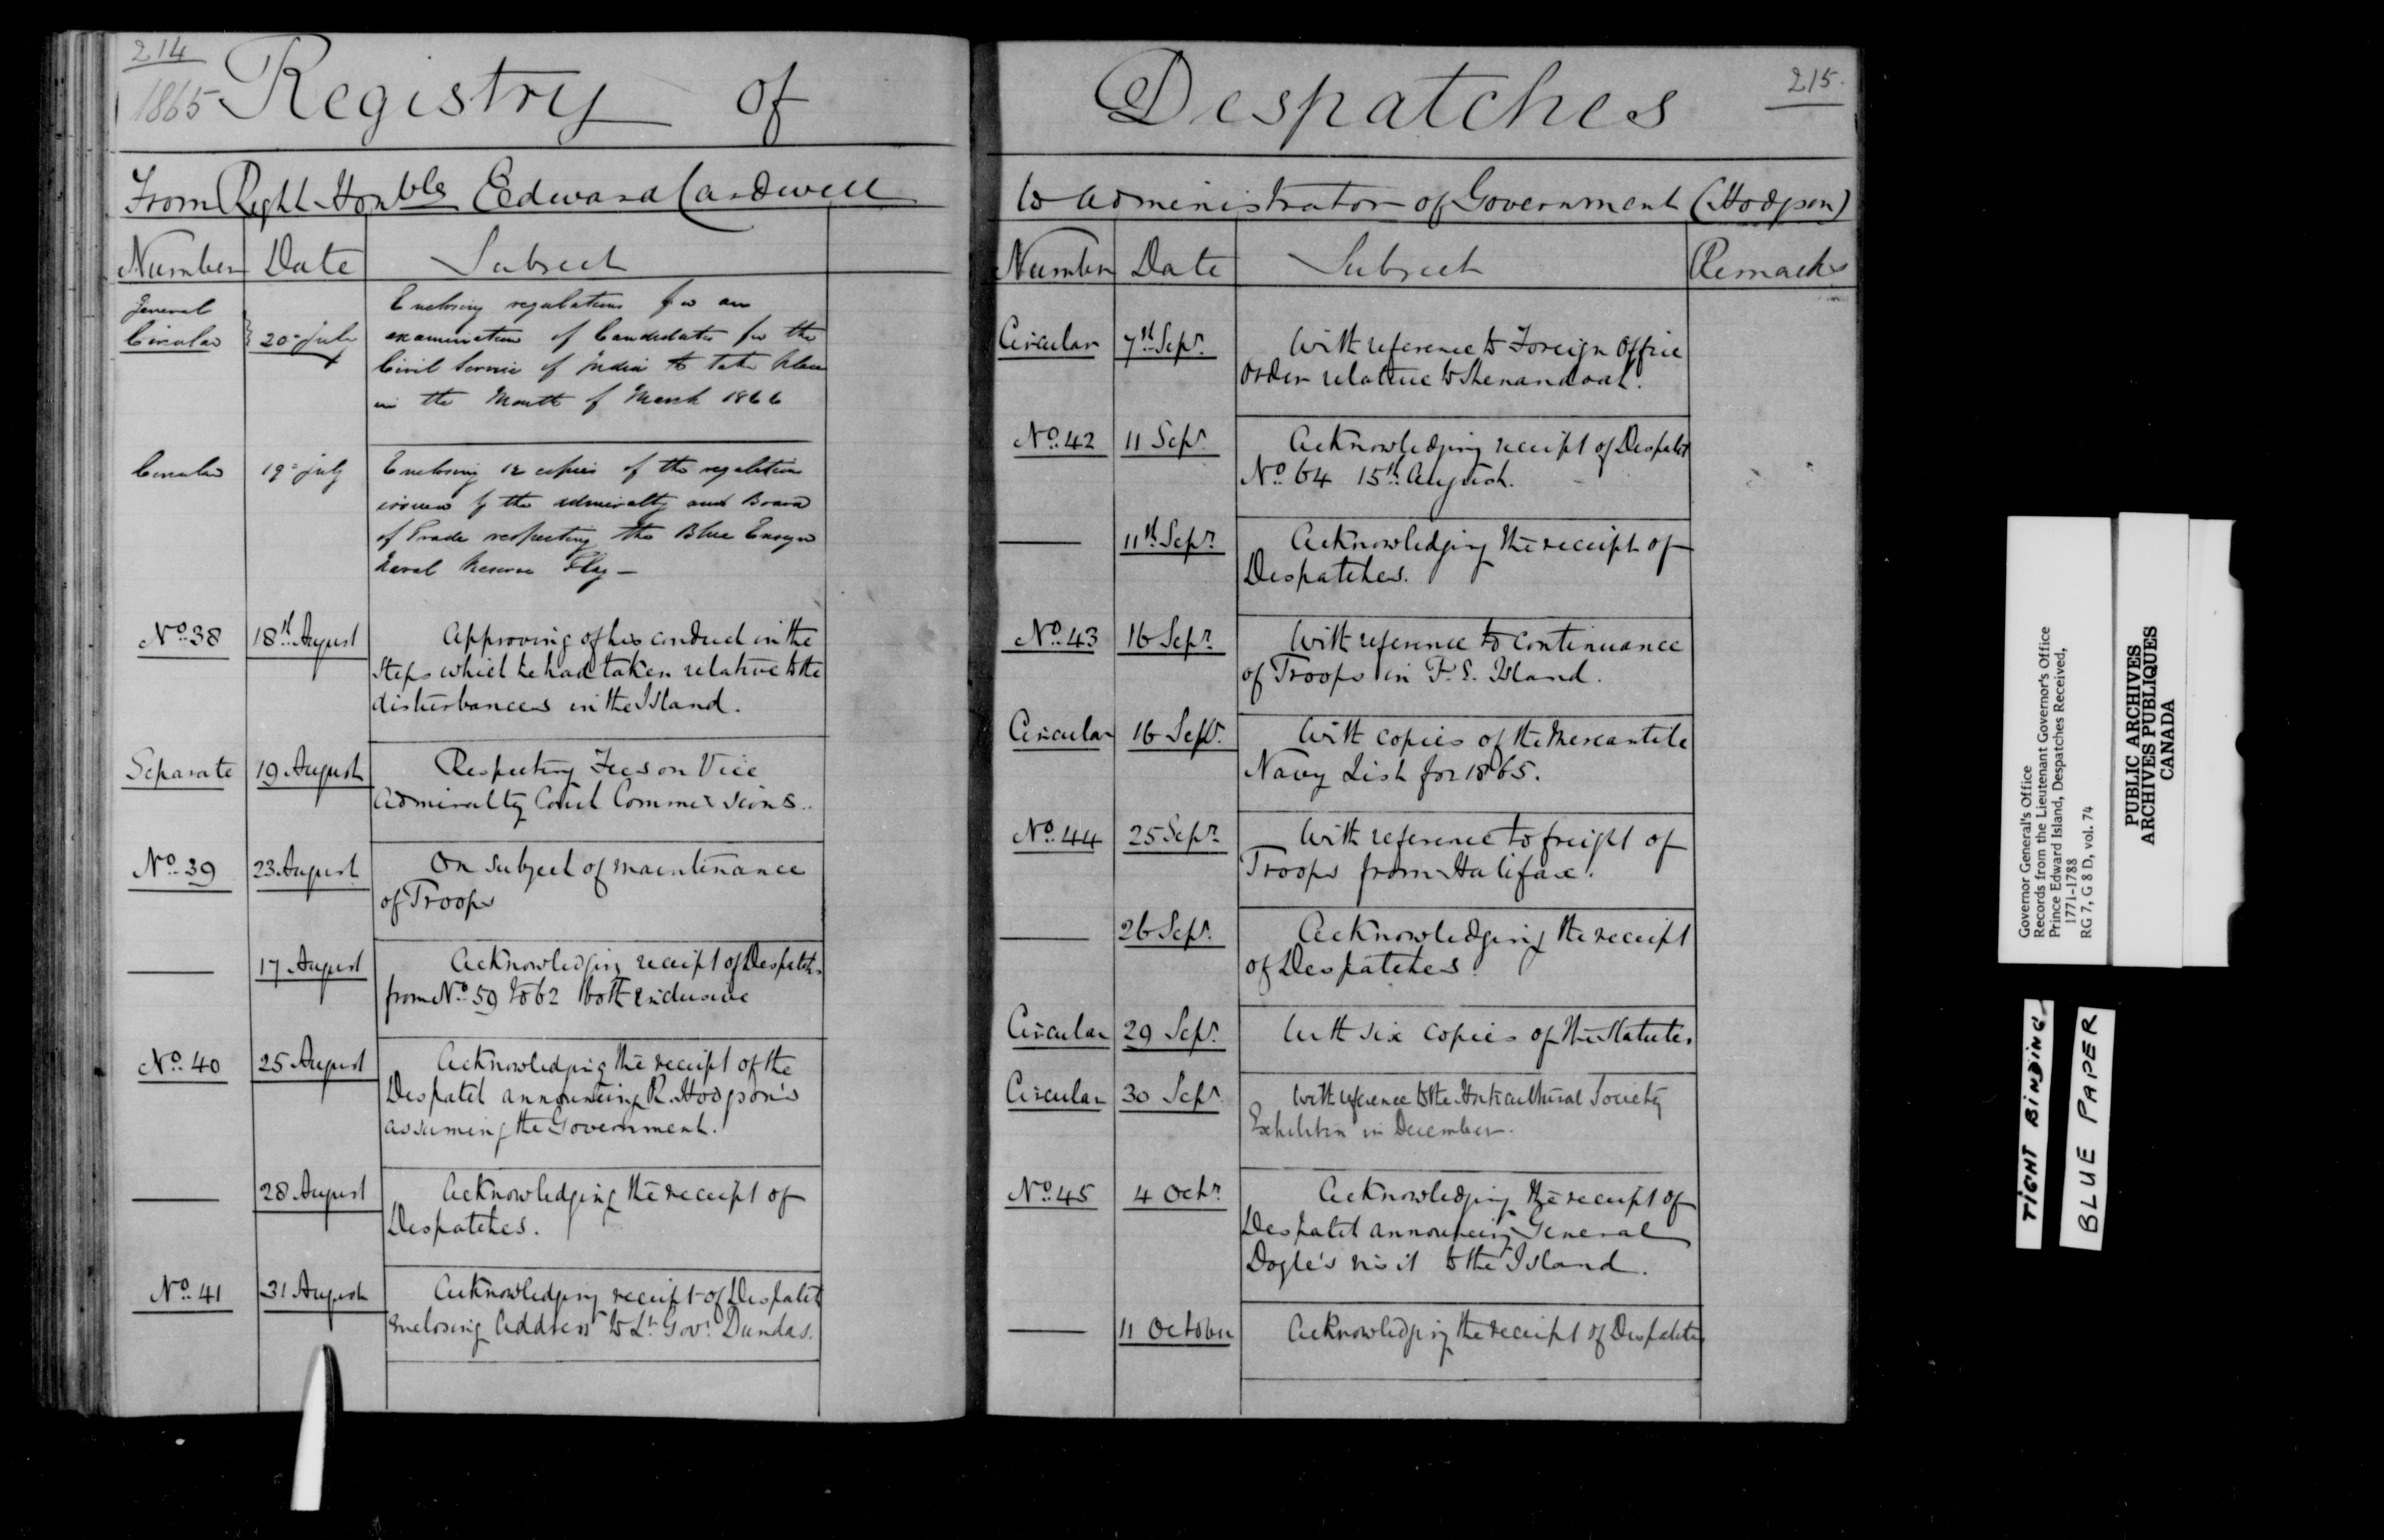 214
1865 Registry of
From Right Honble Edward Cardwell
Number Date Subject
General
Circular } 20 July Enclosing regulations for an
examination of Candidates for the
Civil Service of India to take place
in the Month of March 1866
Circular 19 July Enclosing 12 copies of the regulations
issued by the Admiralty and Board
of Trade respecting the Blue Ensign
Naval Reserve Flag —
No. 38 18th August Approving of his conduct in the
steps which he had taken relative to the
disturbances in the Island.
Separate 19 August Respecting Fees on Vice
Admiralty Court Commissions.
No. 39 23 August On subject of maintenance
of Troops
— 17 August Acknowledging receipt of Despatches
from No. 59 to 62 both inclusive
No. 40 25 August Acknowledging the receipt of the
Despatch announcing R. Hodgson's
assuming the Government.
— 28 August Acknowledging the receipt of
Despatches.
No. 41 31 August Acknowledging receipt of Despatch
enclosing Address to Lt Govr Dundas.
215.
Despatches
to Administrator of Government (Hodgson)
Number Date Subject Remarks
Circular 7th Sepr. With reference to Foreign Office
Order relative to Shenandoah.
No. 42 11 Sepr. Acknowledging receipt of Despatch
No. 64 15th August.
— 11th Sepr. Acknowledging the receipt of
Despatches.
No. 43 16 Sepr. With reference to continuance
of Troops in P. E. Island.
Circular 16 Sepr. With copies of the Mercantile
Navy List for 1865.
No. 44 25 Sepr. With reference to freight of
Troops from Halifax.
— 26 Sepr. Acknowledging the receipt
of Despatches.
Circular 29 Sepr. With six copies of the Statutes
Circular 30 Sepr. With reference to the Horticultural Society
Exhibition in December.
No. 45 4 Octr. Acknowledging the receipt of
Despatch announcing General
Doyle's visit to the Island.
— 11 October Acknowledging the receipt of Despatches
Governor General's Office
Records from the Lieutenant Governor's Office
Prince Edward Island, Despatches Received,
1771-1788
RG 7, G 8 D, vol. 74
PUBLIC ARCHIVES
ARCHIVES PUBLIQUES
CANADA
TIGHT BINDING
BLUE PAPER